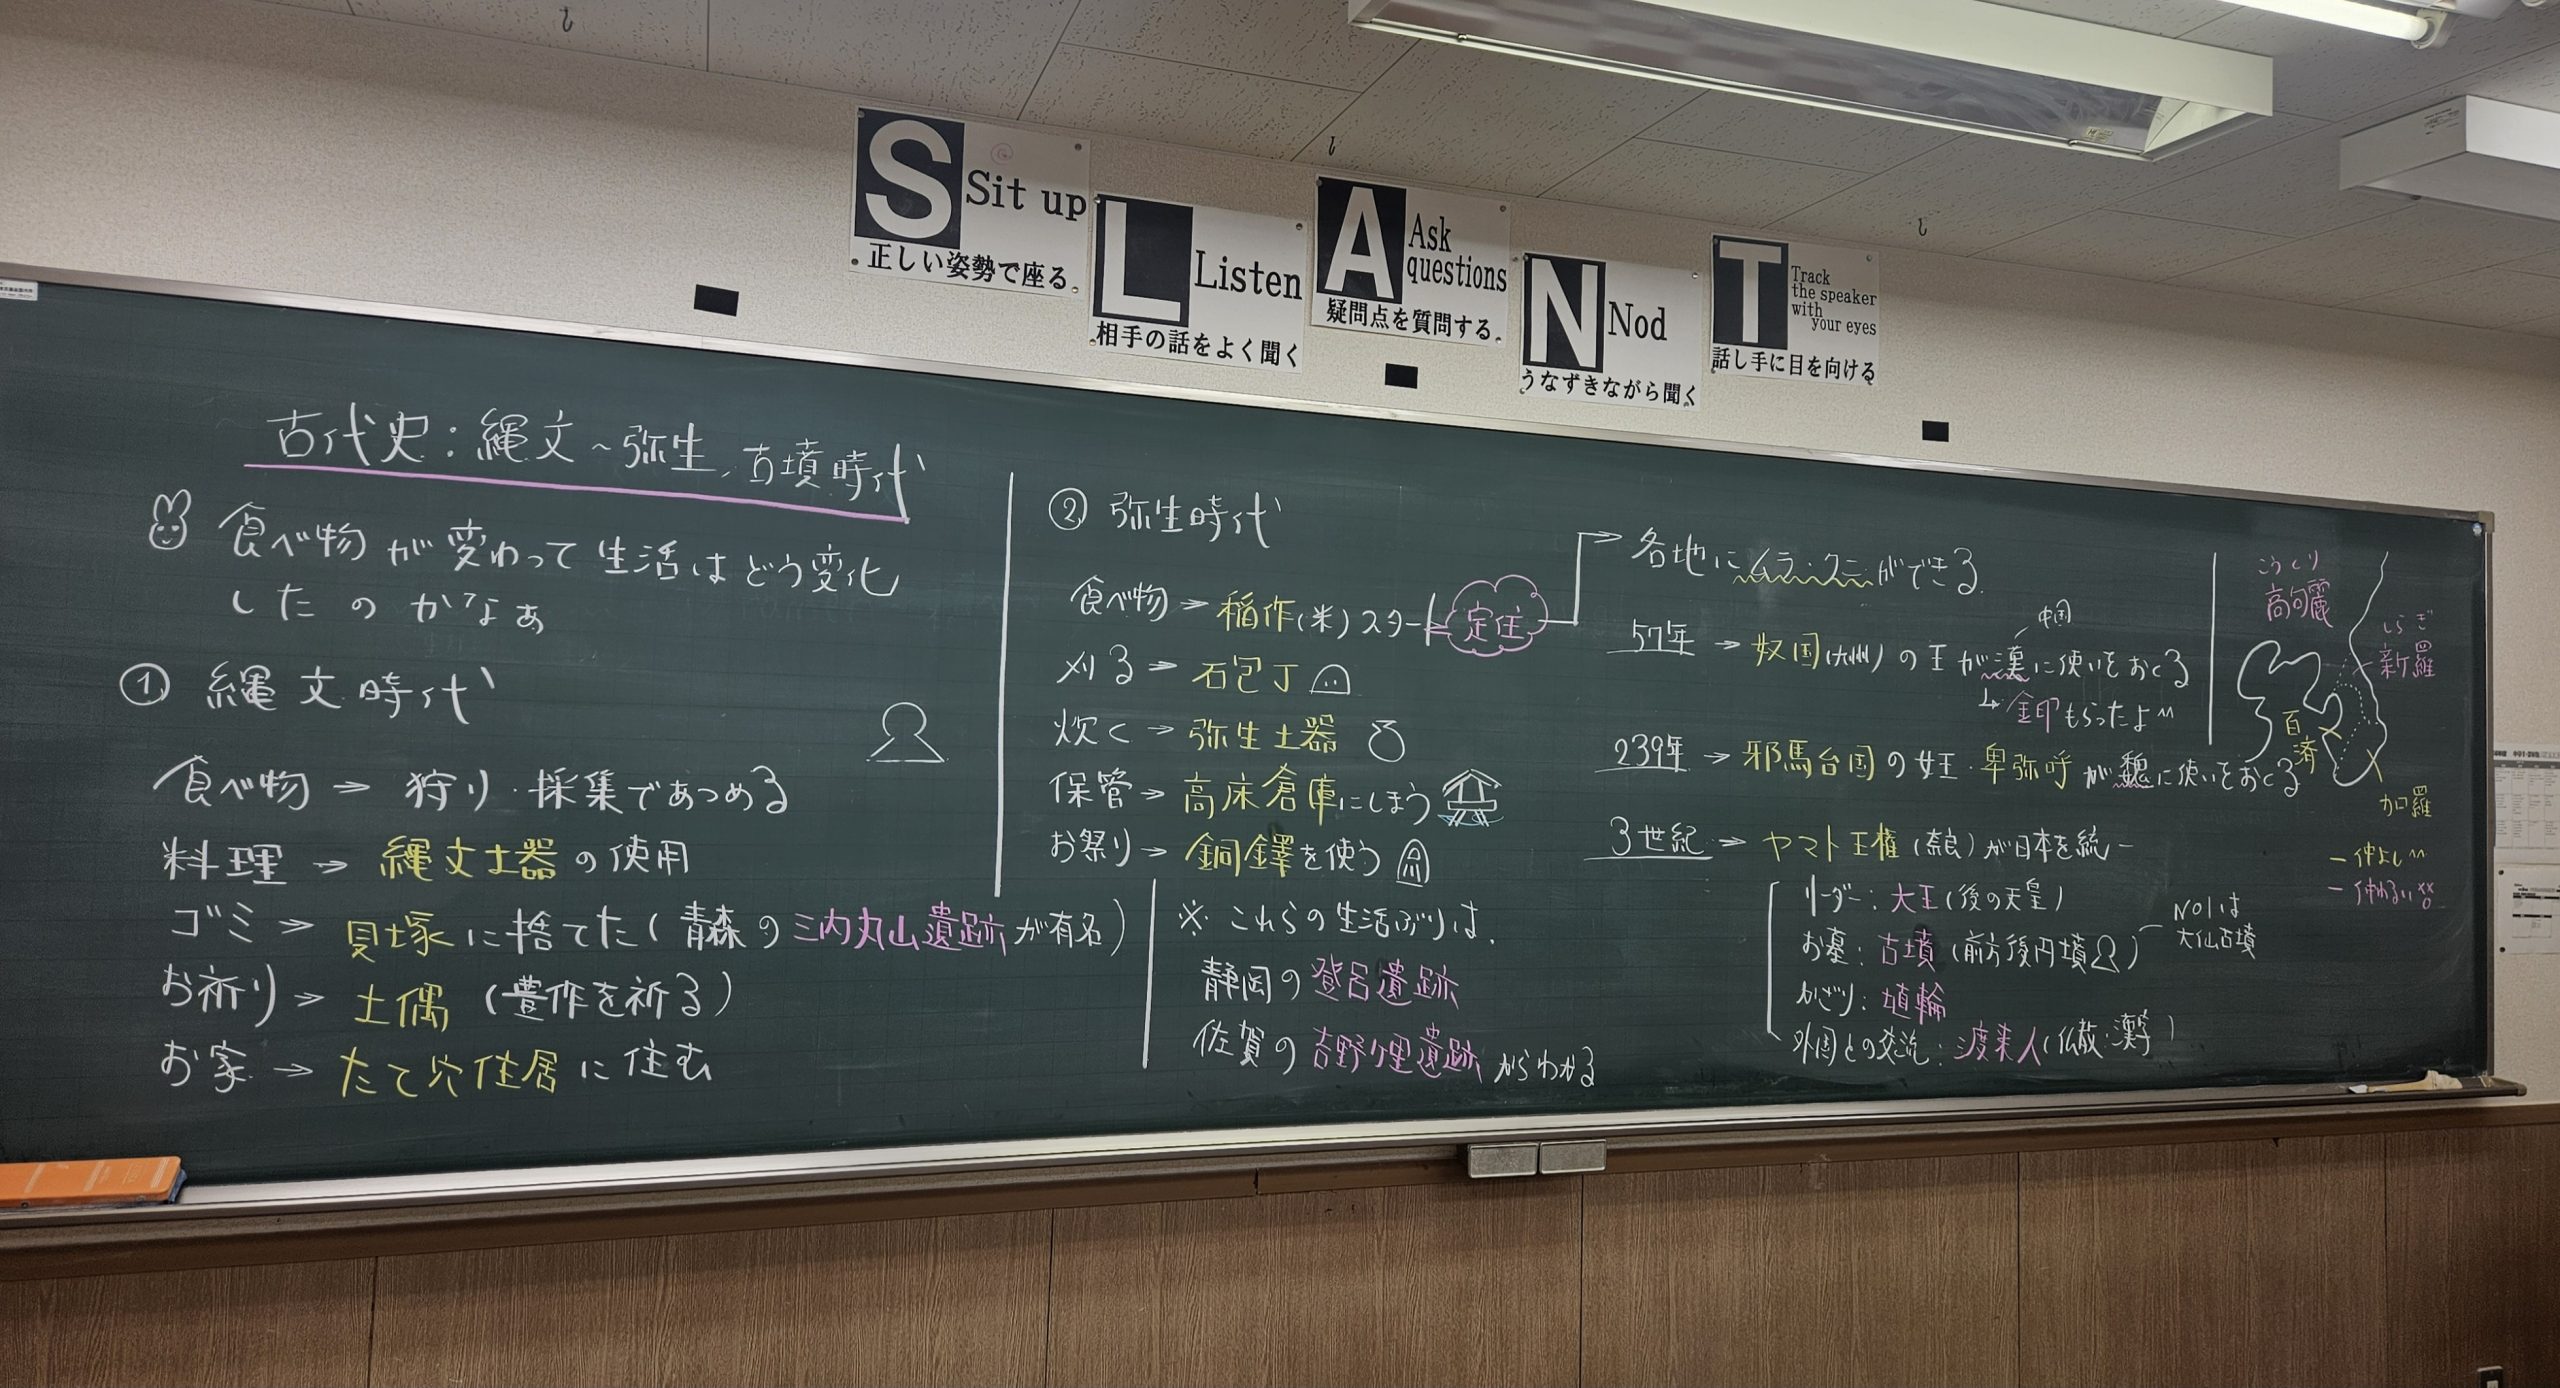 S Sit up
正しい姿勢で座る。
L Listen
相手の話をよく聞く
A Ask questions
疑問点を質問する。
N Nod
うなずきながら聞く。
T Track
the speaker
with
your eyes
話し手に目を向ける
古代史:縄文~弥生、古墳時代
食べ物が変わって生活はどう変化
したのかなぁ
① 縄文時代
食べ物→狩り・採集であつめる
料理→縄文土器の使用
ゴミ→貝塚に捨てた(青森の三内丸山遺跡が有名)
お祈り→土偶(豊作を祈る)
お家→たて穴住居に住む
② 弥生時代
食べ物→稲作(米)スタート 定住
刈る→石包丁
炊く→弥生土器
保管→高床倉庫にしまう
お祭り→銅鐸を使う
※これらの生活ぶりは、
静岡の登呂遺跡
佐賀の吉野ヶ里遺跡からわかる
→各地にムラ・クニができる
中国
57年→奴国(九州)の王が漢に使いをおくる
↳金印もらったよ^^
239年→邪馬台国の女王・卑弥呼が魏に使いをおくる
3世紀→ヤマト王権(奈良)が日本を統一
リーダー:大王(後の天皇)
お墓:古墳(前方後円墳)
No1は
大仙古墳
かざり:埴輪
外国との交流:渡来人(仏教・漢字)
こうくり
高句麗
しらぎ
新羅
百済
加羅
ー仲よし^^
ー仲わるい××